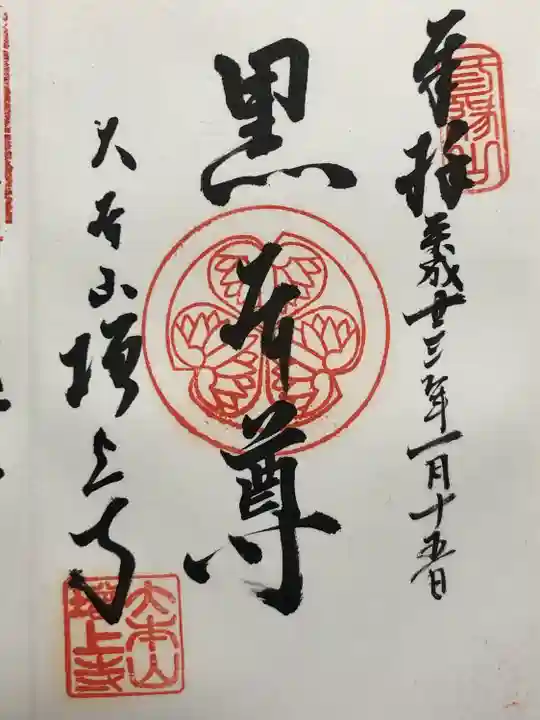 奉拝
平成廿三年一月十五日
三縁山
黒本尊
大本山増上寺
大本山
増上寺